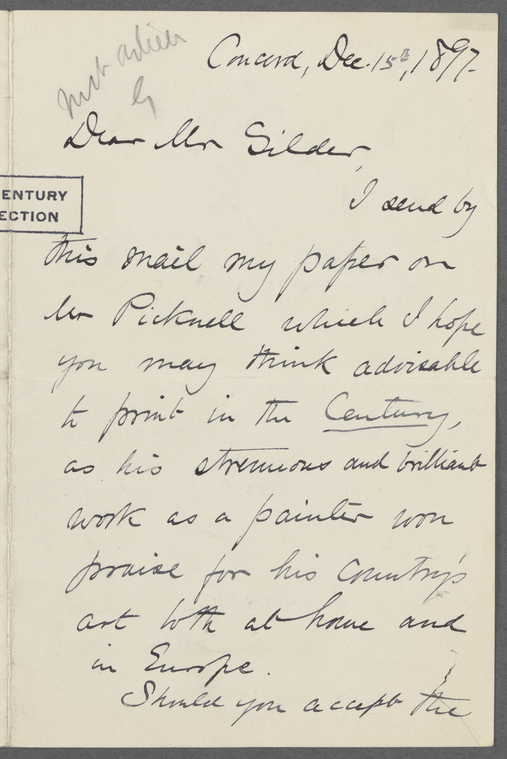 Concord, Dec. 15th, 1897.
Dear Mr Gilder,
I send by
ENTURY
ECTION
this mail my paper on
Mr Picknell which I hope
you may think advisable
to print in the Century,
as his strenuous and brilliant
work as a painter won
praise for his country's
art both at home and
in Europe.
Should you accept the